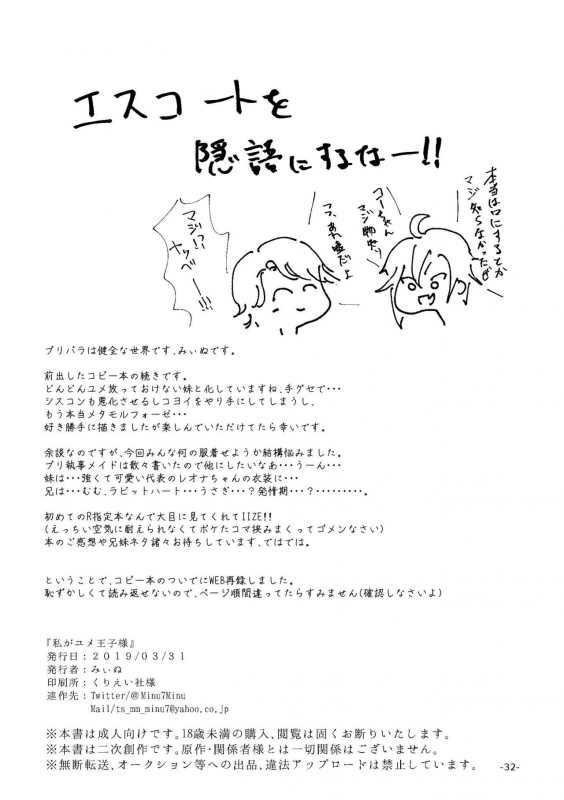 エスコートを
隠語にするなー!!
本当は口にするとか
マジ知らなかったぜ
コーちゃん
マジ物知り
フ、あれ嘘だよ
マジ!?!
ヤッベー!!!
プリパラは健全な世界です、みぃぬです。
前出したコピー本の続きです。
どんどんユメ放っておけない妹と化していますね、手グセで・・・
シスコンも悪化させるしコヨイをやり手にしてしまうし、
もう本当メタモルフォーゼ・・・
好き勝手に描きましたが楽しんでいただけてたら幸いです。
余談なのですが、今回みんな何の服着せようか結構悩みました。
プリ執事メイドは散々書いたので他にしたいなあ・・・うーん・・・
妹は・・・強くて可愛い代表のレオナちゃんの衣装に・・・
兄は・・・むむ、ラビットハート・・・うさぎ・・・?発情期・・・?・・・・・・・・・。
初めてのR指定本なんで大目に見てくれてIIZE!!
(えっちい空気に耐えられなくてボケたコマ挟みまくってゴメンなさい)
本のご感想や兄妹ネタ諸々お待ちしています、ではでは。
ということで、コピー本のついでにWEB再録しました。
恥ずかしくて読み返せないので、ページ順間違ってたらすみません(確認しなさいよ)
『私がユメ王子様』
発行日：２０１９/０３/３１
発行者：みぃぬ
印刷所：くりえい社様
連作先：Twitter/@Minu7Minu
Mail/ts_mm_minu7@yahoo.co.jp
※本書は成人向けです。18歳未満の購入、閲覧は固くお断りいたします。
※本書は二次創作です。原作・関係者様とは一切関係はございません。
※無断転送、オークション等への出品、違法アップロードは禁止しています。
-32-